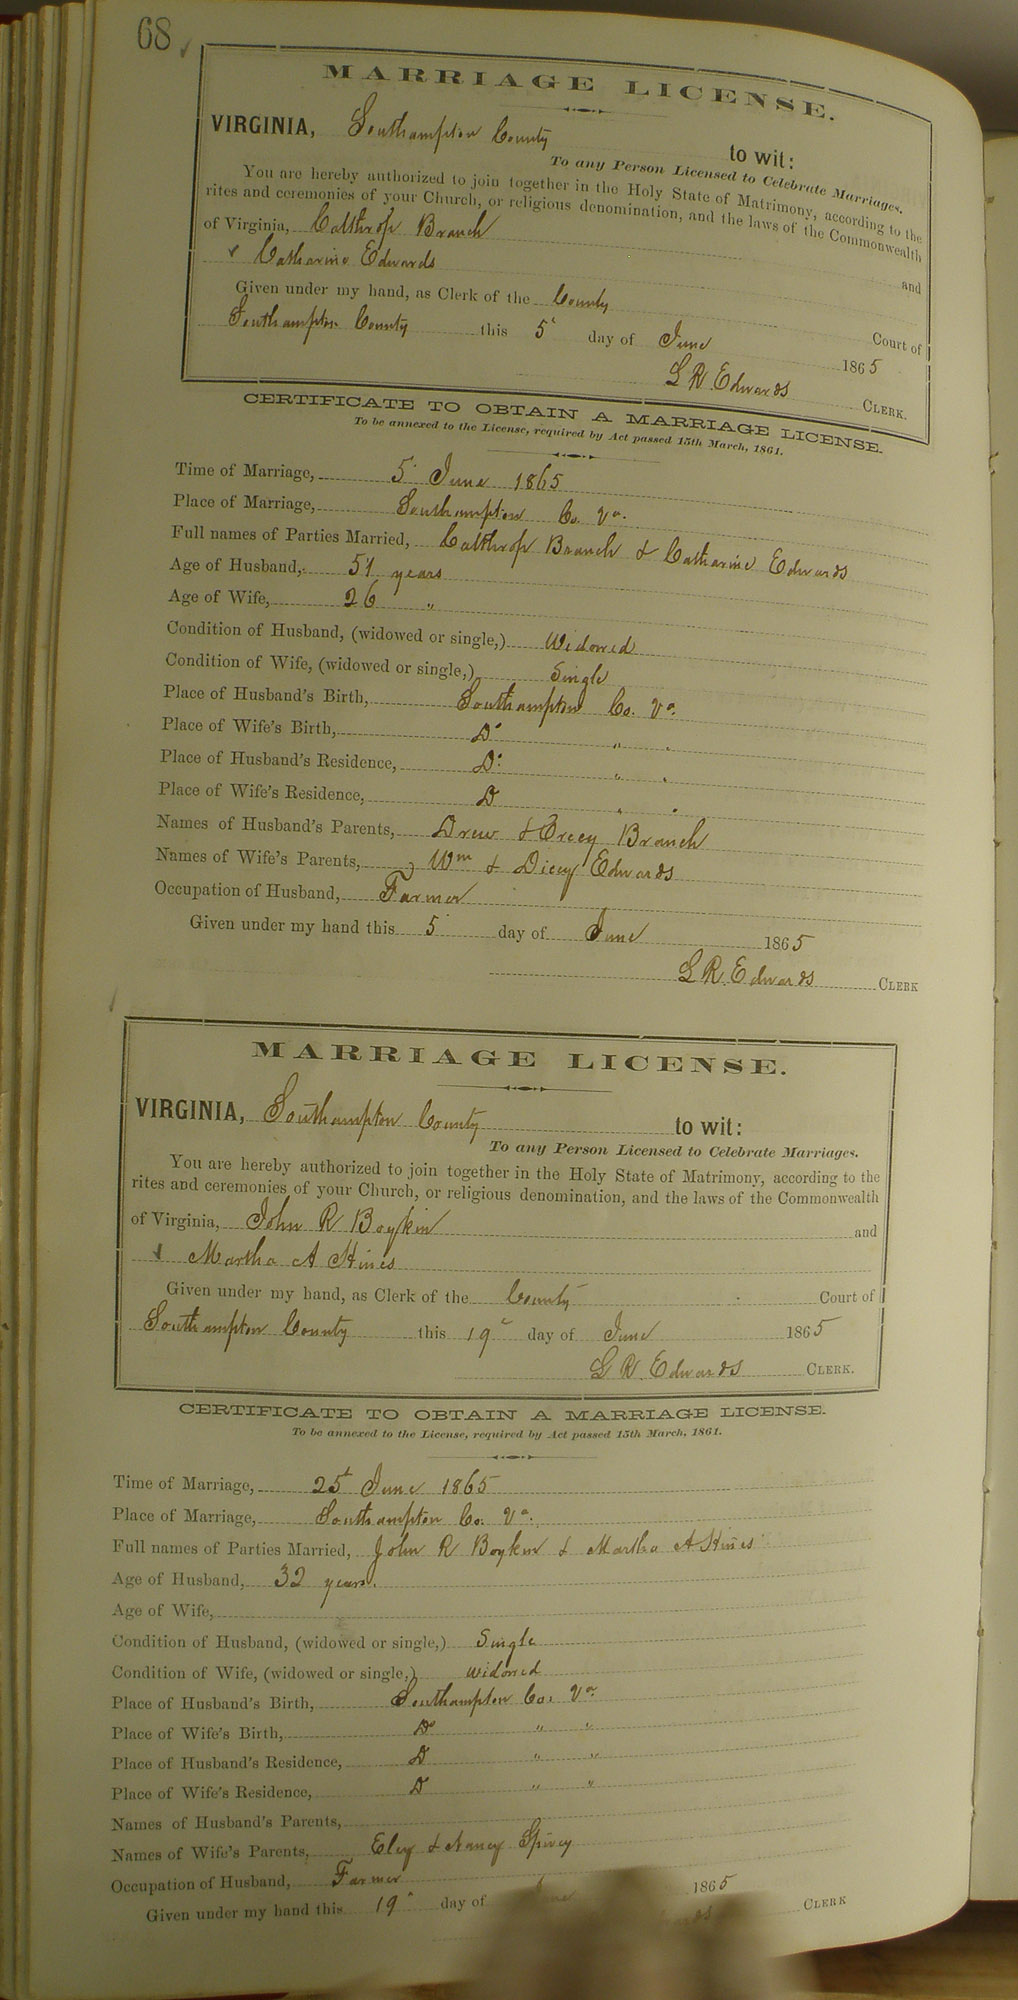 68
MARRIAGE LICENSE.
VIRGINIA, Southampton County to wit:
To any Person Licensed to Celebrate Marriages.
You are hereby authorized to join together in the Holy State of Matrimony, according to the
rites and ceremonies of your Church, or religious denomination, and the laws of the Commonwealth
of Virginia, Calthrop Branch and
Catharine Edwards
Given under my hand, as Clerk of the County Court of
Southampton County this 5 day of June 1865
L R Edwards CLERK.
CERTIFICATE TO OBTAIN A MARRIAGE LICENSE.
To be annexed to the License, required by Act passed 15th March, 1861.
Time of Marriage, 5 June 1865
Place of Marriage, Southampton Co. Va.
Full names of Parties Married, Calthrop Branch & Catharine Edwards
Age of Husband, 51 years
Age of Wife, 26 "
Condition of Husband, (widowed or single,) Widowed
Condition of Wife, (widowed or single,) Single
Place of Husband's Birth, Southampton Co. Va.
Place of Wife's Birth, Do " "
Place of Husband's Residence, Do " "
Place of Wife's Residence, D " "
Names of Husband's Parents, Drew & Branch
Names of Wife's Parents, Wm & Dicey Edwards
Occupation of Husband, Farmer
Given under my hand this 5 day of June 1865
L R Edwards CLERK
MARRIAGE LICENSE.
VIRGINIA, Southampton County to wit:
To any Person Licensed to Celebrate Marriages.
You are hereby authorized to join together in the Holy State of Matrimony, according to the
rites and ceremonies of your Church, or religious denomination, and the laws of the Commonwealth
of Virginia, John R Boykin and
Martha A Hines
Given under my hand, as Clerk of the County Court of
Southampton County this 19 day of June 1865
L R Edwards CLERK.
CERTIFICATE TO OBTAIN A MARRIAGE LICENSE.
To be annexed to the License, required by Act passed 15th March, 1861.
Time of Marriage, 25 June 1865
Place of Marriage, Southampton Co. Va.
Full names of Parties Married, John R Boykin & Martha A Hines
Age of Husband, 32 years.
Age of Wife,
Condition of Husband, (widowed or single,) Single
Condition of Wife, (widowed or single,) widowed
Place of Husband's Birth, Southampton Co. Va.
Place of Wife's Birth, Do " "
Place of Husband's Residence, D " "
Place of Wife's Residence, D " "
Names of Husband's Parents,
Names of Wife's Parents, Eley & Nancy Spivey
Occupation of Husband, Farmer
Given under my hand this 19 day of June 1865
CLERK